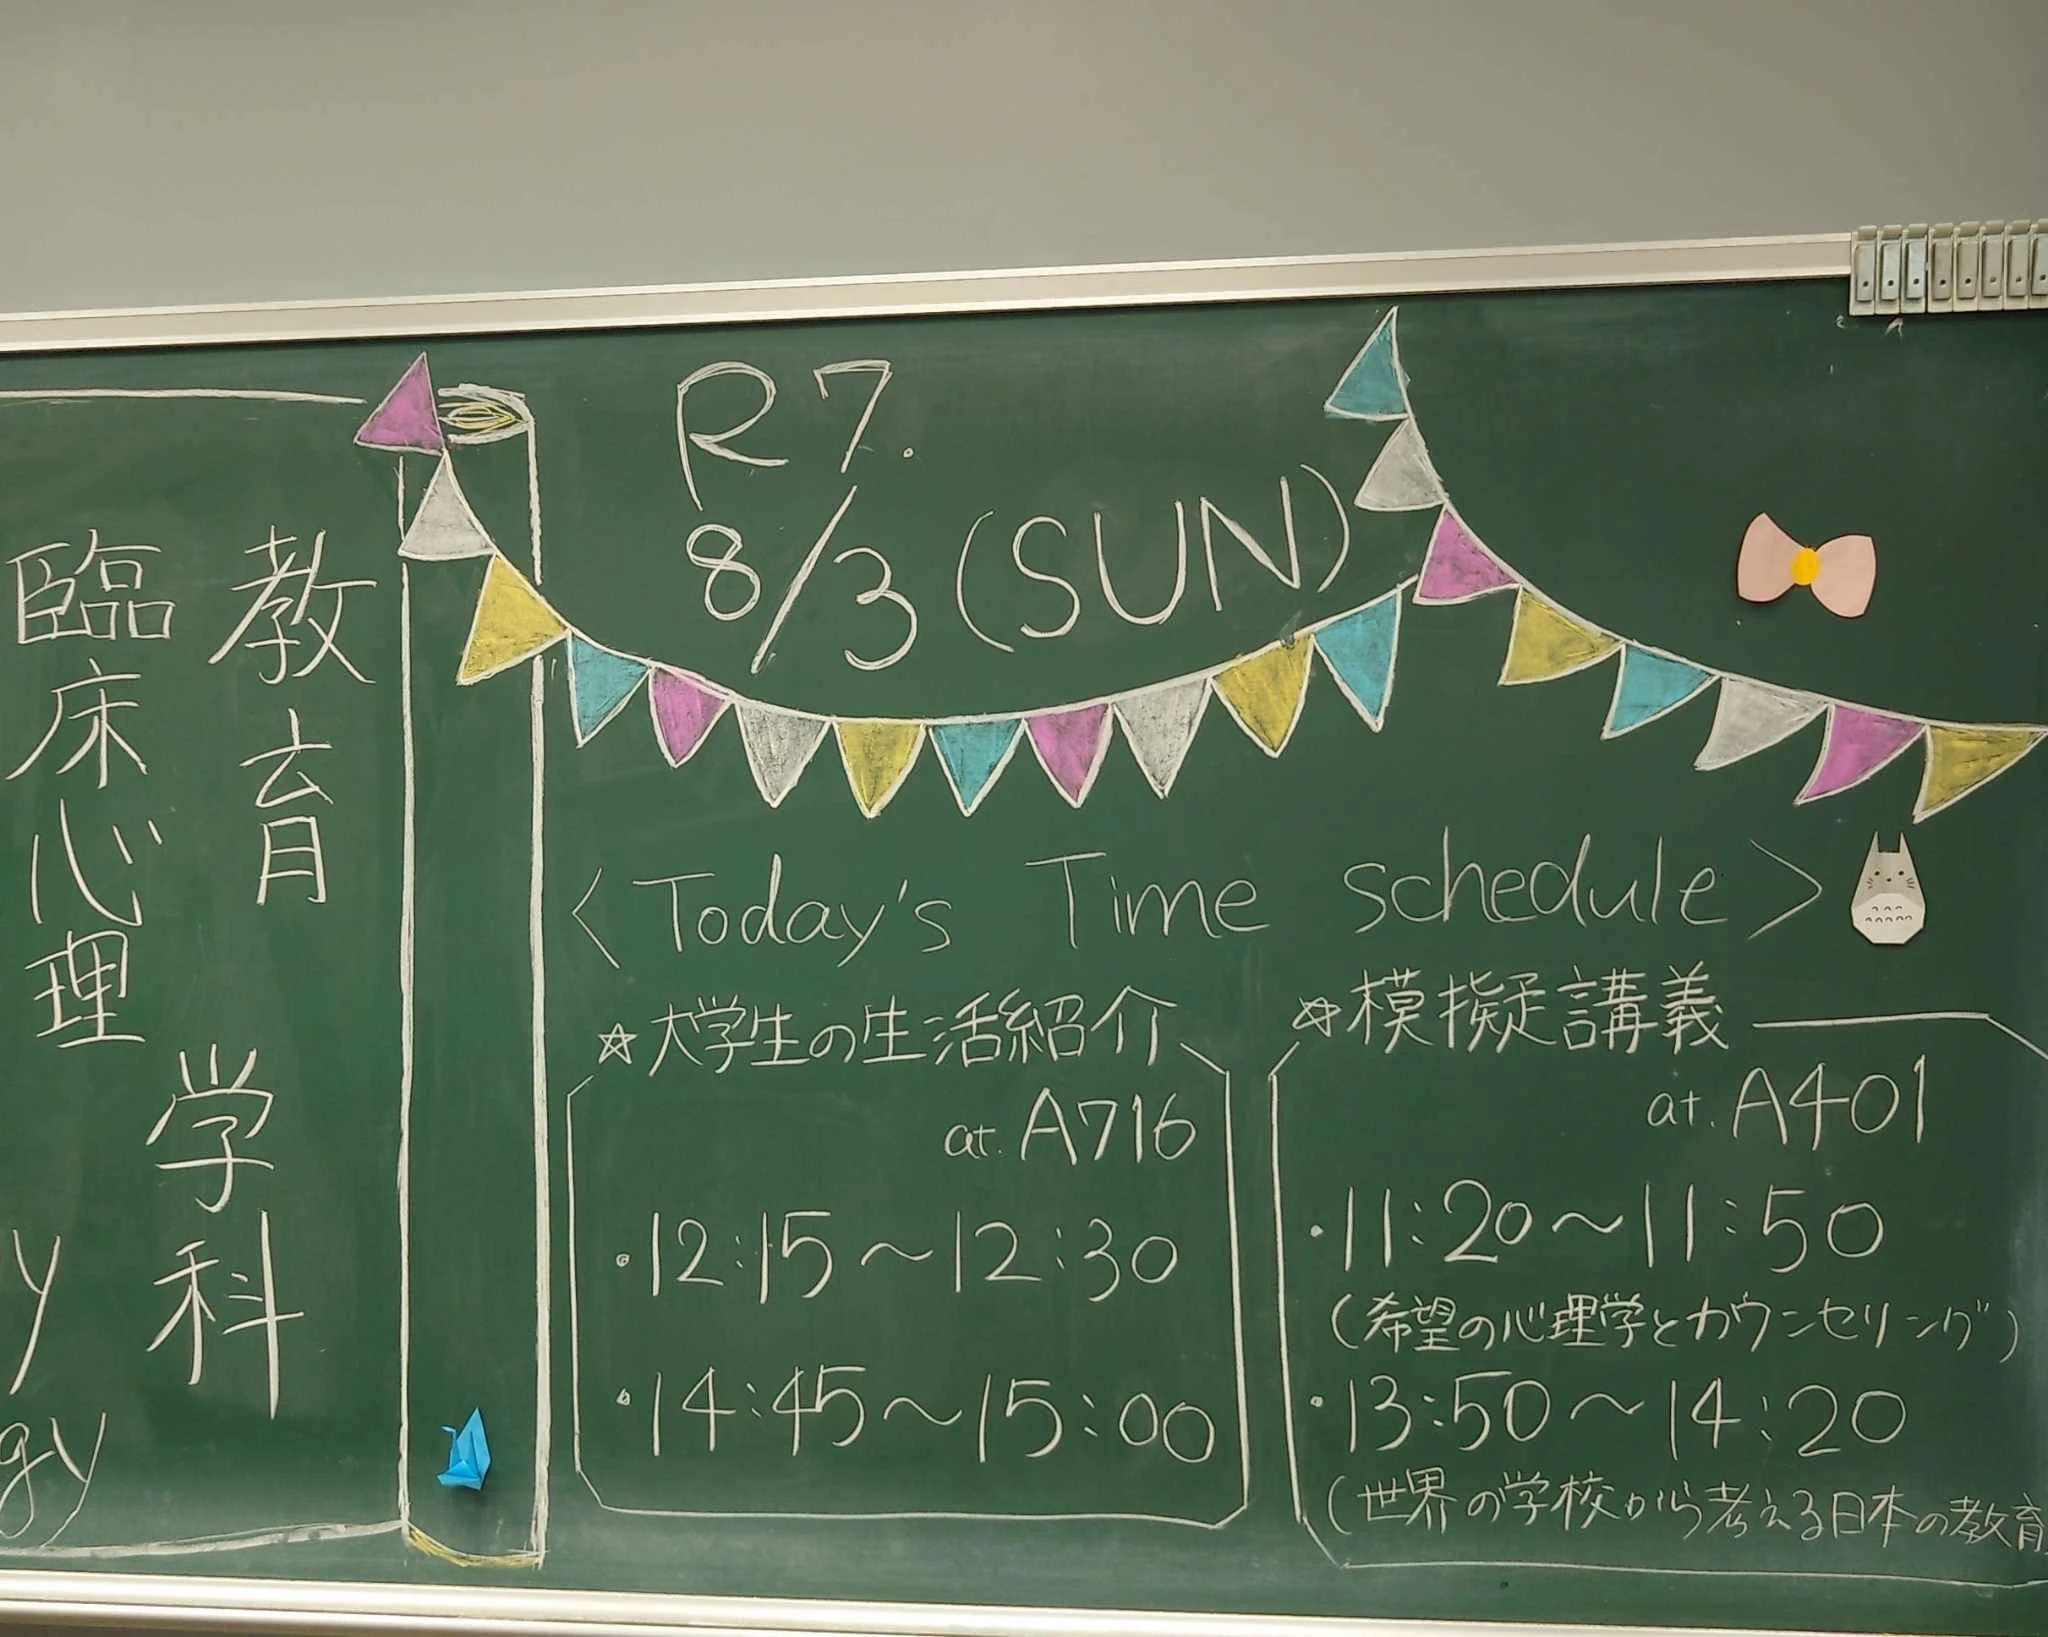 教育
臨床心理
学科
y
gy
R7.
8/3(SUN)
<Today's Time schedule>
☆大学生の生活紹介
at.A716
・12:15～12:30
・14:45～15:00
☆模擬講義
at.A401
・11:20～11:50
(希望の心理学とカウンセリング)
・13:50～14:20
(世界の学校から考える日本の教育